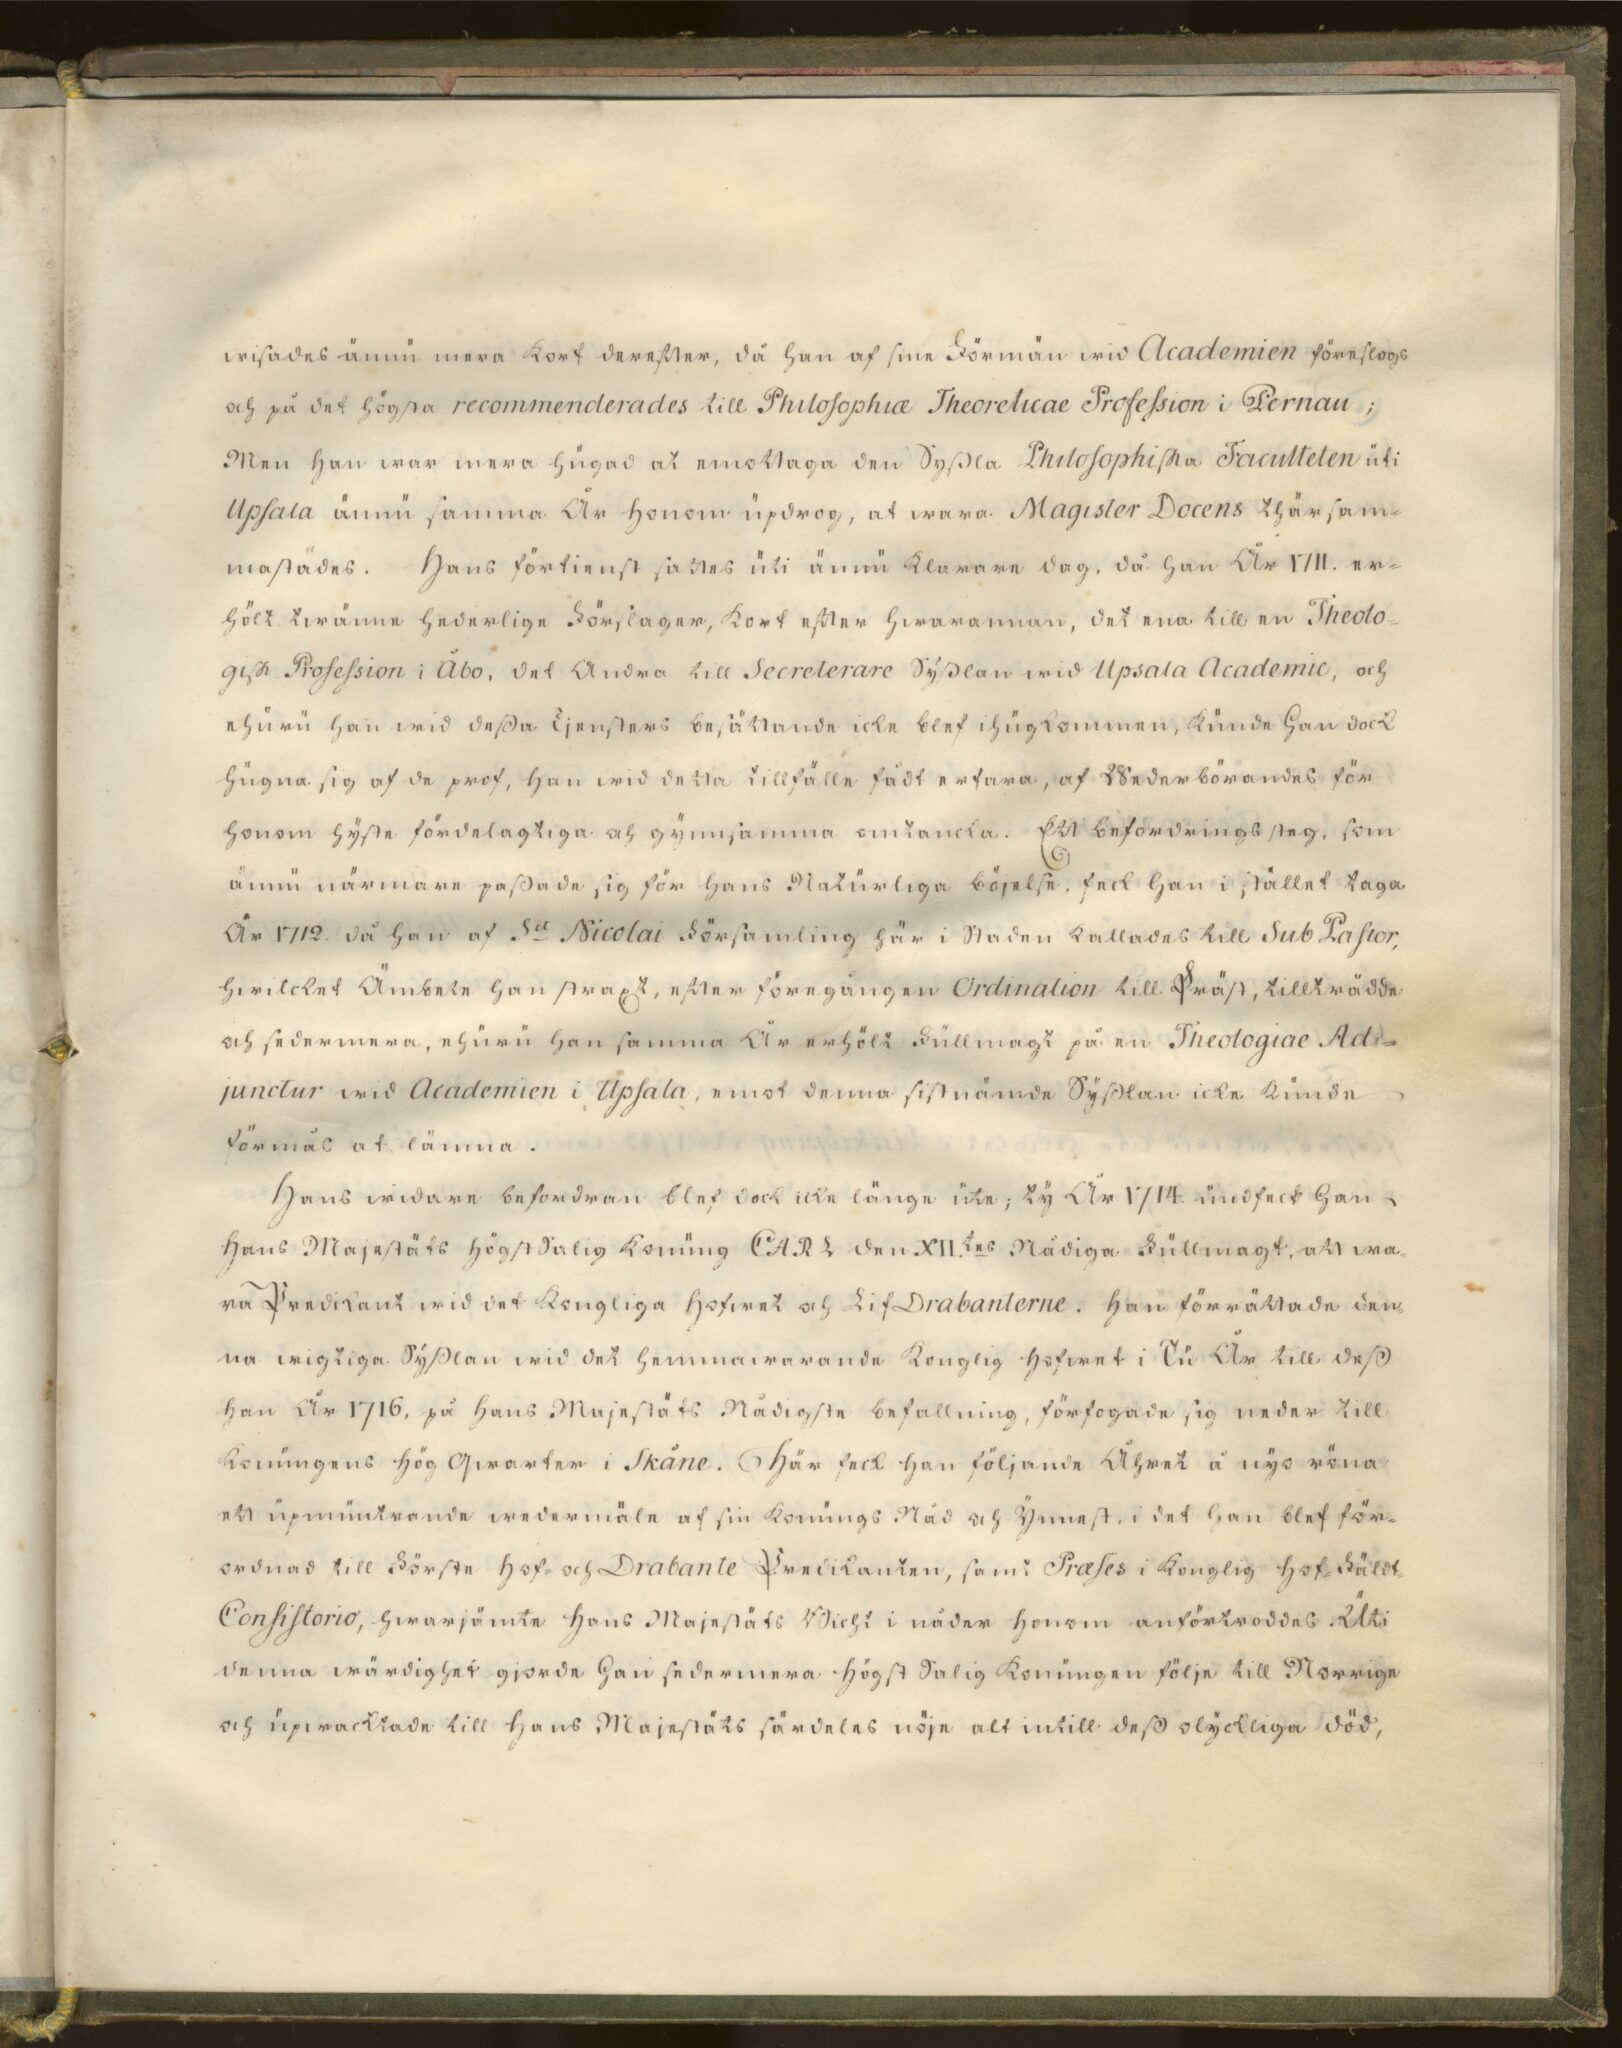 wisades ännu mera kort derefter, då han af sine Förmän wid Academien föreslogs
och på det högsta recommenderades till Philosophiæ Theoreticae Profession i Pernau;
Men han war mera hugad at emottaga den Syßla Philosophiska Faculteten uti
Upsala ännu samma År honom updrog, at wara Magister Docens thärsam-
mastädes. Hans förtienst sattes uti ännu klarare dag, då han År 1711. er-
hölt twänne hederlige Förslager, kort efter hwarannan, det ena till en Theolo-
gisk Profession i Åbo, det Andra till Secreterare Syßlan wid Upsala Academie, och
ehuru han wid deßa Tjensters besättande icke blef ihugkommen, kunde Han dock
hugna sig af de prof, han wid detta tillfälle fådt erfara, af Wederbörandes för
honom hyste fördelagtiga och gynnsamma omtancka. Ett befordrings steg, som
ännu närmare paßade sig för hans Naturliga böjelse, feck Han i stället taga
År 1712. då han af S:t Nicolai Församling här i Staden kallades till Sub Pastor,
hwilcket Ämbete han straxt, efter föregången Ordination till Präst, tillträdde
och sedermera, ehuru han samma År erhölt Fullmagt på en Theologiae Ad-
junctur wid Academien i Upsala, emot denna sistnämde Syßlan icke kunde
förmås at lämna.
Hans widare befordran blef dock icke länge ute; ty År 1714. undfeck Han
Hans Majestäts Högst Salig Konung CARL den XII.tes Nådiga Fullmagt, att wa-
ra Predikant wid det Kongliga Hofwet och Lif Drabanterne. Han förrättade den-
na wigtiga Syßlan wid det hemmawarande Konglig Hofwet i Tu År till deß
han År 1716, på Hans Majestäts Nådigste befallning, förfogade sig neder till
Konungens Hög Qwarter i Skåne. Här feck han följande Åhret å nyo röna
ett upmuntrande wedermäle af sin Konungs Nåd och Ynnest, i det Han blef för-
ordnad till Förste Hof- och Drabante Predikanten, samt Præses i Konglig Hof-Fäldt-
Consistorio, hwarjämte Hans Majestäts Bicht i nåder honom anförtroddes. Uti
denna wärdighet gjorde Han sedermera Högst Salig Konungen följe till Norrige
och upwacktade till Hans Majestäts särdeles nöje alt intill deß olyckliga död,